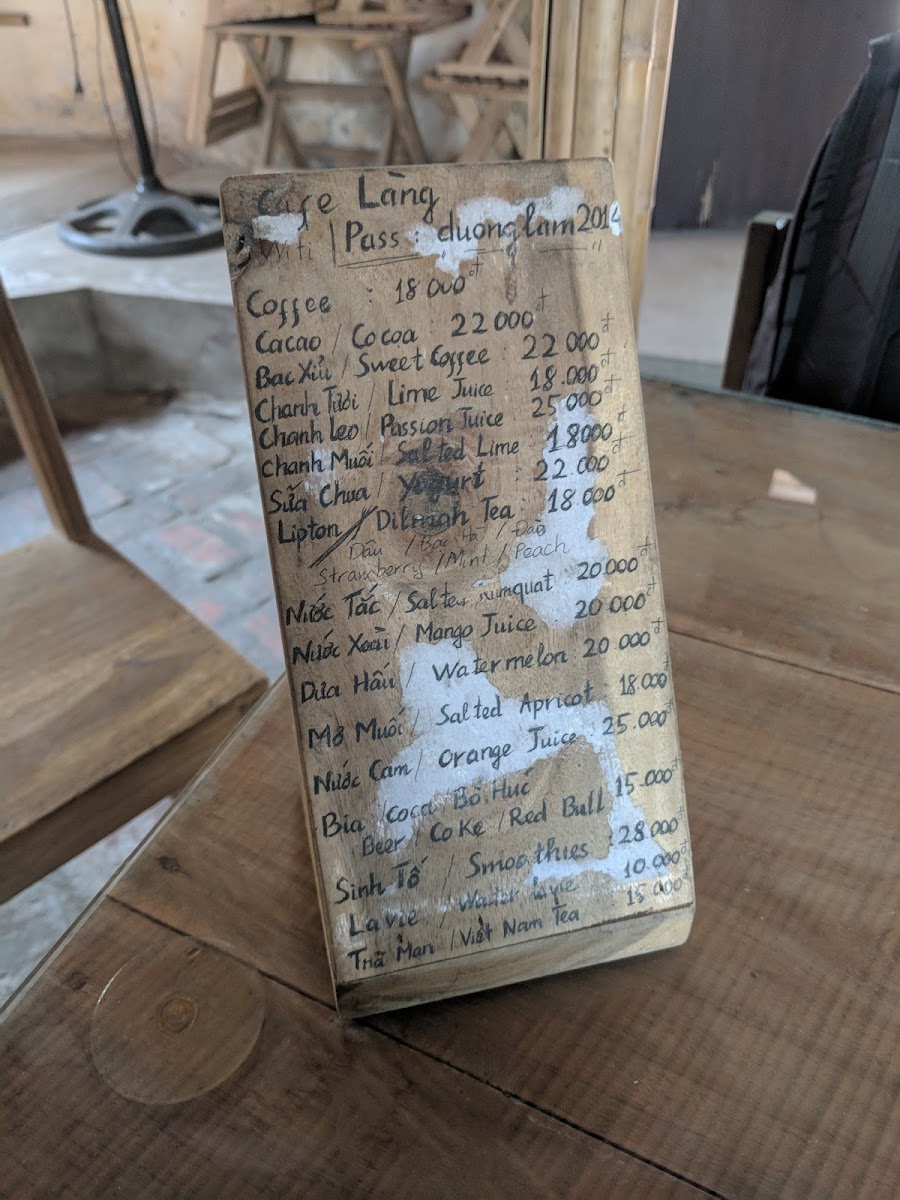 Cafe Làng
Wifi | Pass : duonglam2014
Coffee : 18 000đ
Cacao / Cocoa : 22 000đ
Bạc Xỉu / Sweet Coffee : 22 000đ
Chanh Tươi / Lime Juice : 18.000đ
Chanh Leo / Passion Juice 25 000đ
Chanh Muối / Salted Lime : 18000đ
Sữa Chua / Yogurt : 22.000đ
Lipton / Dilmah Tea : 18.000đ
Dâu / Bạc Hà / Đào
Strawberry / Mint / Peach
Nước Tắc / Salted kumquat 20000đ
Nước Xoài / Mango Juice 20 000đ
Dưa Hấu / Watermelon 20 000đ
Mơ Muối / Salted Apricot : 18.000đ
Nước Cam / Orange Juice : 25.000đ
Bia / Coca Bò Húc 15.000đ
Beer / CoKe / Red Bull
Sinh Tố / Smoothies : 28 000đ
Lavie / Water 10.000đ
Trà Mạn / Việt Nam Tea : 15 000đ